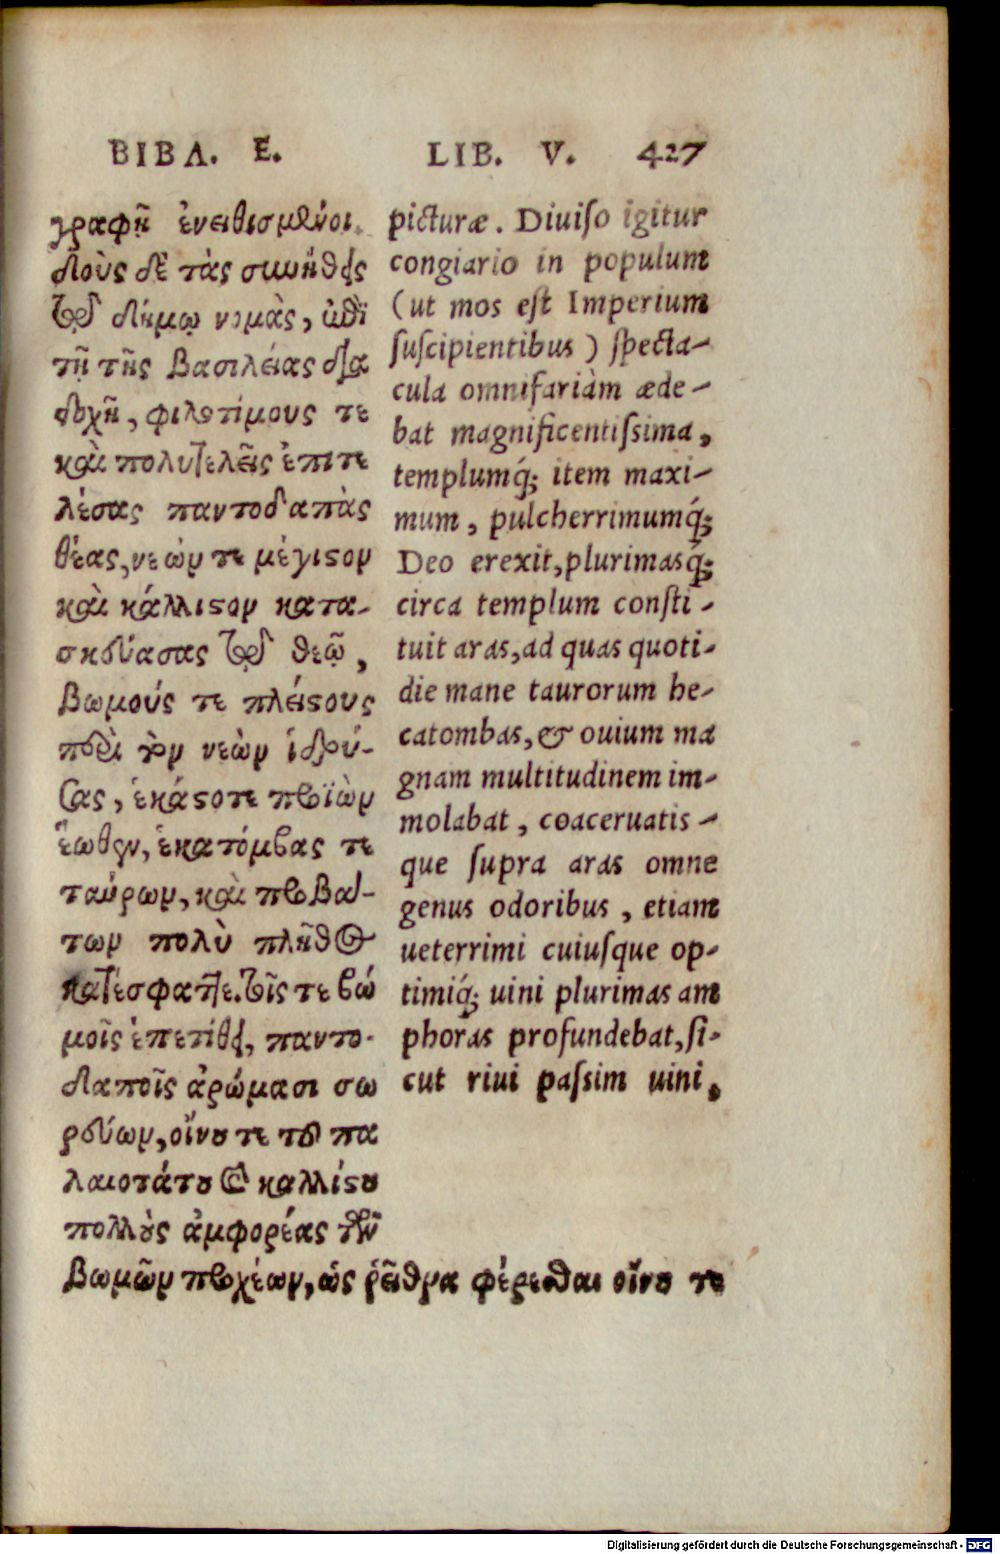 ΒΙΒΛ. Ε. LIB. V. 427
γραφῇ ἐνειθισμένοι.
δοὺς δὲ τὰς συνήθεις
τῷ δήμῳ νομὰς, ἐπὶ
τῇ τῆς βασιλείας δια
δοχῇ, φιλοτίμους τε
καὶ πολυτελεῖς ἐπιτε
λέσας παντοδαπὰς
θέας, νεὼν τε μέγιστον
καὶ κάλλιστον κατα-
σκευάσας τῷ θεῷ,
βωμούς τε πλείστους
περὶ τὸν νεὼν ἱδρύ-
σας, ἑκάστοτε προϊὼν
ἕωθεν, ἑκατόμβας τε
ταύρων, καὶ προβά-
των πολὺ πλῆθος
κατέσφαττε. τοῖς τε βώ
μοῖς ἐπετίθει, παντο-
δαποῖς ἀρώμασι σω
ρεύων, οἴνου τε τοῦ πα
λαιοτάτου καὶ καλλίστου
πολλοὺς ἀμφορέας τῶν
βωμῶν προχέων, ὡς ῥεῖθρα φέρεσθαι οἴνου τε
picturæ. Diuiſo igitur
congiario in populum
(ut mos eſt Imperium
ſuſcipientibus) ſpecta-
cula omnifariàm æde-
bat magnificentiſsima,
templumq́; item maxi-
mum, pulcherrimumq́;
Deo erexit, plurimasq́;
circa templum conſti-
tuit aras, ad quas quoti-
die mane taurorum he-
catombas, & ouium ma
gnam multitudinem im-
molabat, coaceruatis-
que ſupra aras omne
genus odoribus, etiam
ueterrimi cuiuſque op-
timiq́; uini plurimas am
phoras profundebat, ſi-
cut riui paſsim uini,
Digitalisierung gefördert durch die Deutsche Forschungsgemeinschaft - DFG